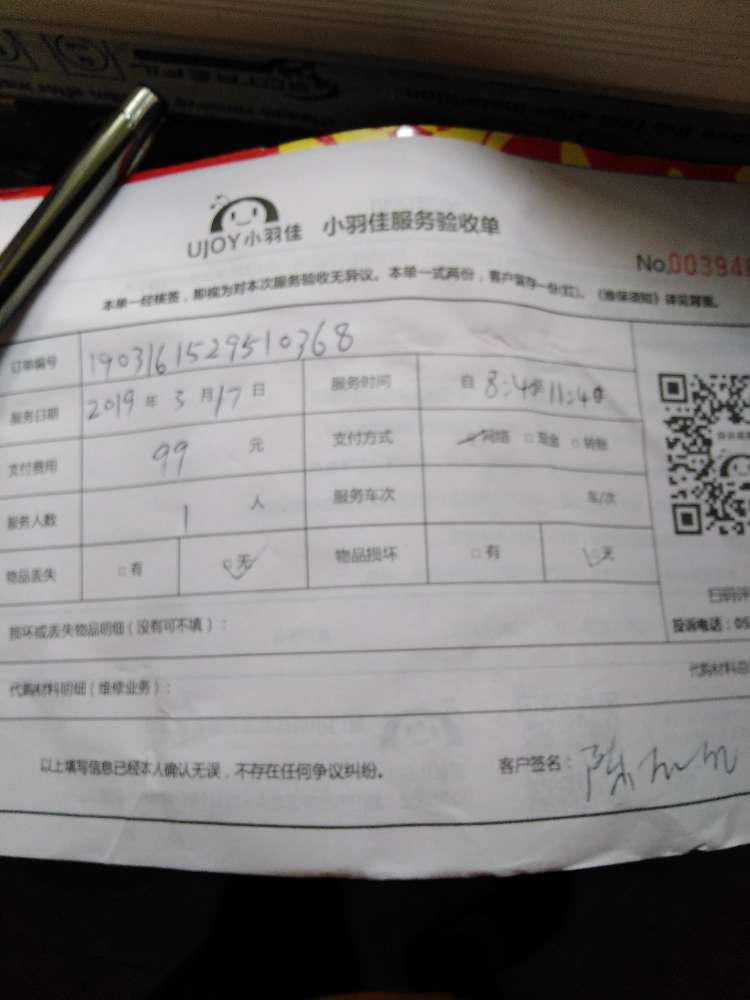 UJOY小羽佳 小羽佳服务验收单
No.003948
本单一经核签，即视为对本次服务验收无异议。本单一式两份，客户留存一份(红)。《维保须知》详见背面。
订单编号 1903161529510368
服务日期 2019 年 3 月 17 日 服务时间 自 8:40 至 11:40
支付费用 99 元 支付方式 □网络 □现金 □转账
服务人数 1 人 服务车次 车/次
物品丢失 □有 □无 物品损坏 □有 □无
扫码评
损坏或丢失物品明细（没有可不填）： 投诉电话：05
代购材料明细（维修业务）： 代购材料总
以上填写信息已经本人确认无误，不存在任何争议纠纷。 客户签名：陈